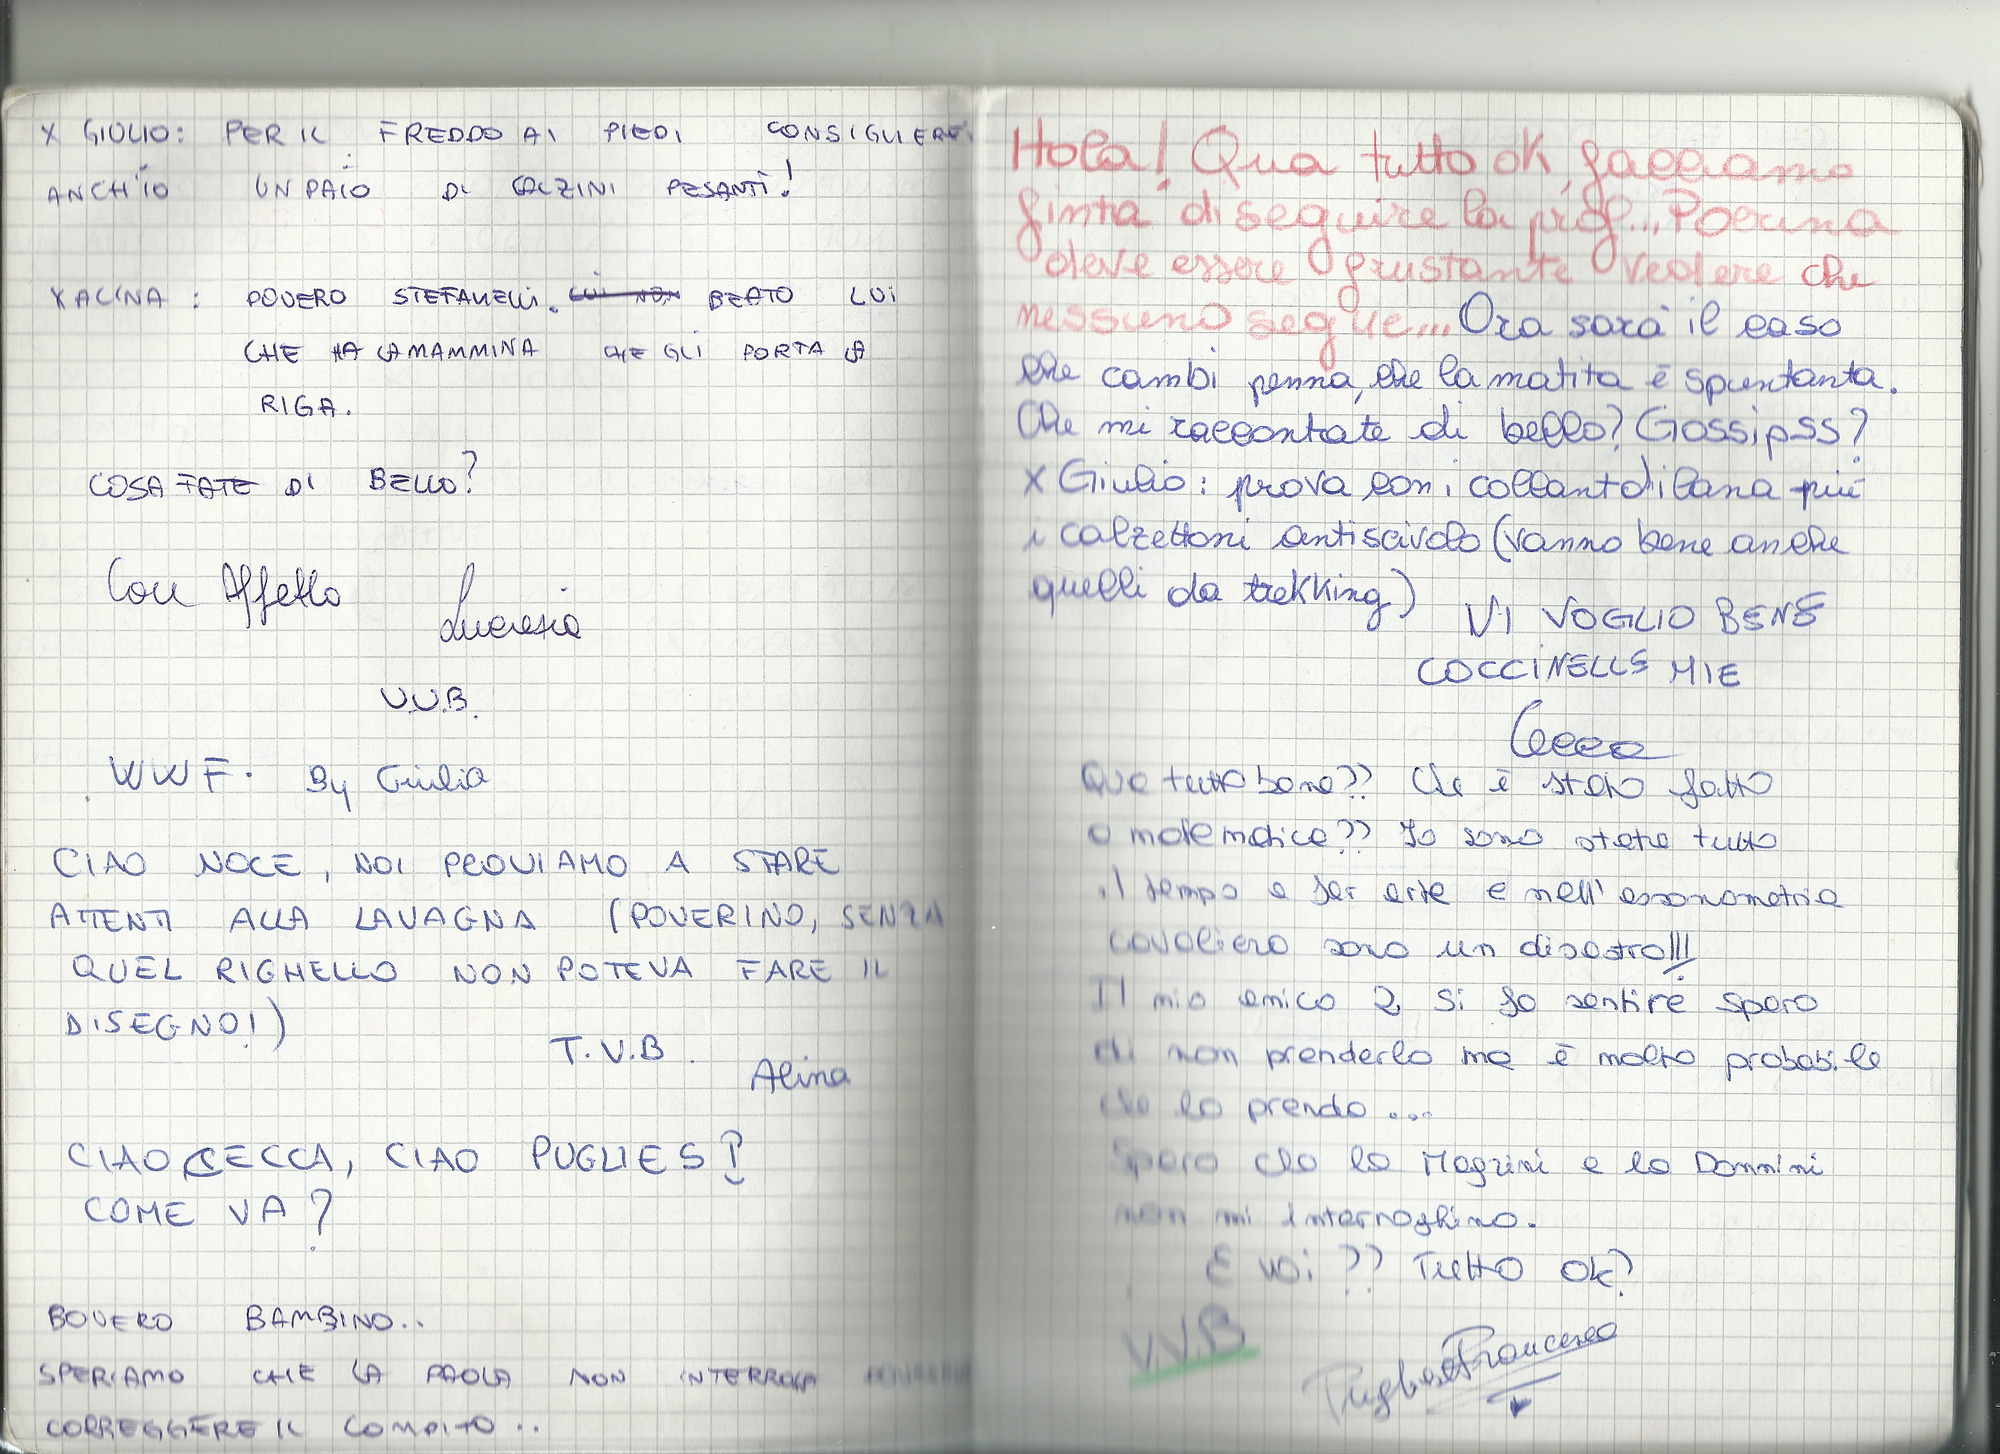 X GIULIO: PER IL FREDDO AI PIEDI CONSIGLIEREI
ANCH'IO UN PAIO DI CALZINI PESANTI!
X ALINA: POVERO STEFANELLI. LUI NON BEATO LUI
CHE HA LA MAMMINA CHE GLI PORTA LA
RIGA.
COSA FATE DI BELLO?
Con Affetto Lucrezia
V.V.B.
WWF. By Giulia
CIAO NOCE, NOI PROVIAMO A STARE
ATTENTI ALLA LAVAGNA (POVERINO, SENZA
QUEL RIGHELLO NON POTEVA FARE IL
DISEGNO!)
T.V.B.
Alina
CIAO CECCA, CIAO PUGLIES!
COME VA?
BOVERO BAMBINO..
SPERIAMO CHE LA PAOLA NON INTERROGA
CORREGGERE IL COMPITO..
Hola! Qua tutto ok, facciamo
finta di seguire la prof... Poerina
deve essere frustante vedere che
nessuno segue... Ora sarà il caso
che cambi penna, che la matita è spuntanta.
Che mi raccontate di bello? Gossipss?
X Giulio: prova con i collant di lana più
i calzettoni antiscivolo (vanno bene anche
quelli da trekking)
VI VOGLIO BENE
COCCINELLE MIE
Cecca
Qua tutto bene?? Che è stato fatto
a matematica?? Io sono stata tutto
il tempo a far arte e nell'assonometria
cavaliera sono un disastro!!!
Il mio amico 2 si fa sentire spero
di non prenderlo ma è molto probabile
che lo prendo...
Spero che la Magrini e la Donnini
non mi interroghino.
E voi?? Tutto ok?
V.V.B
Francesca